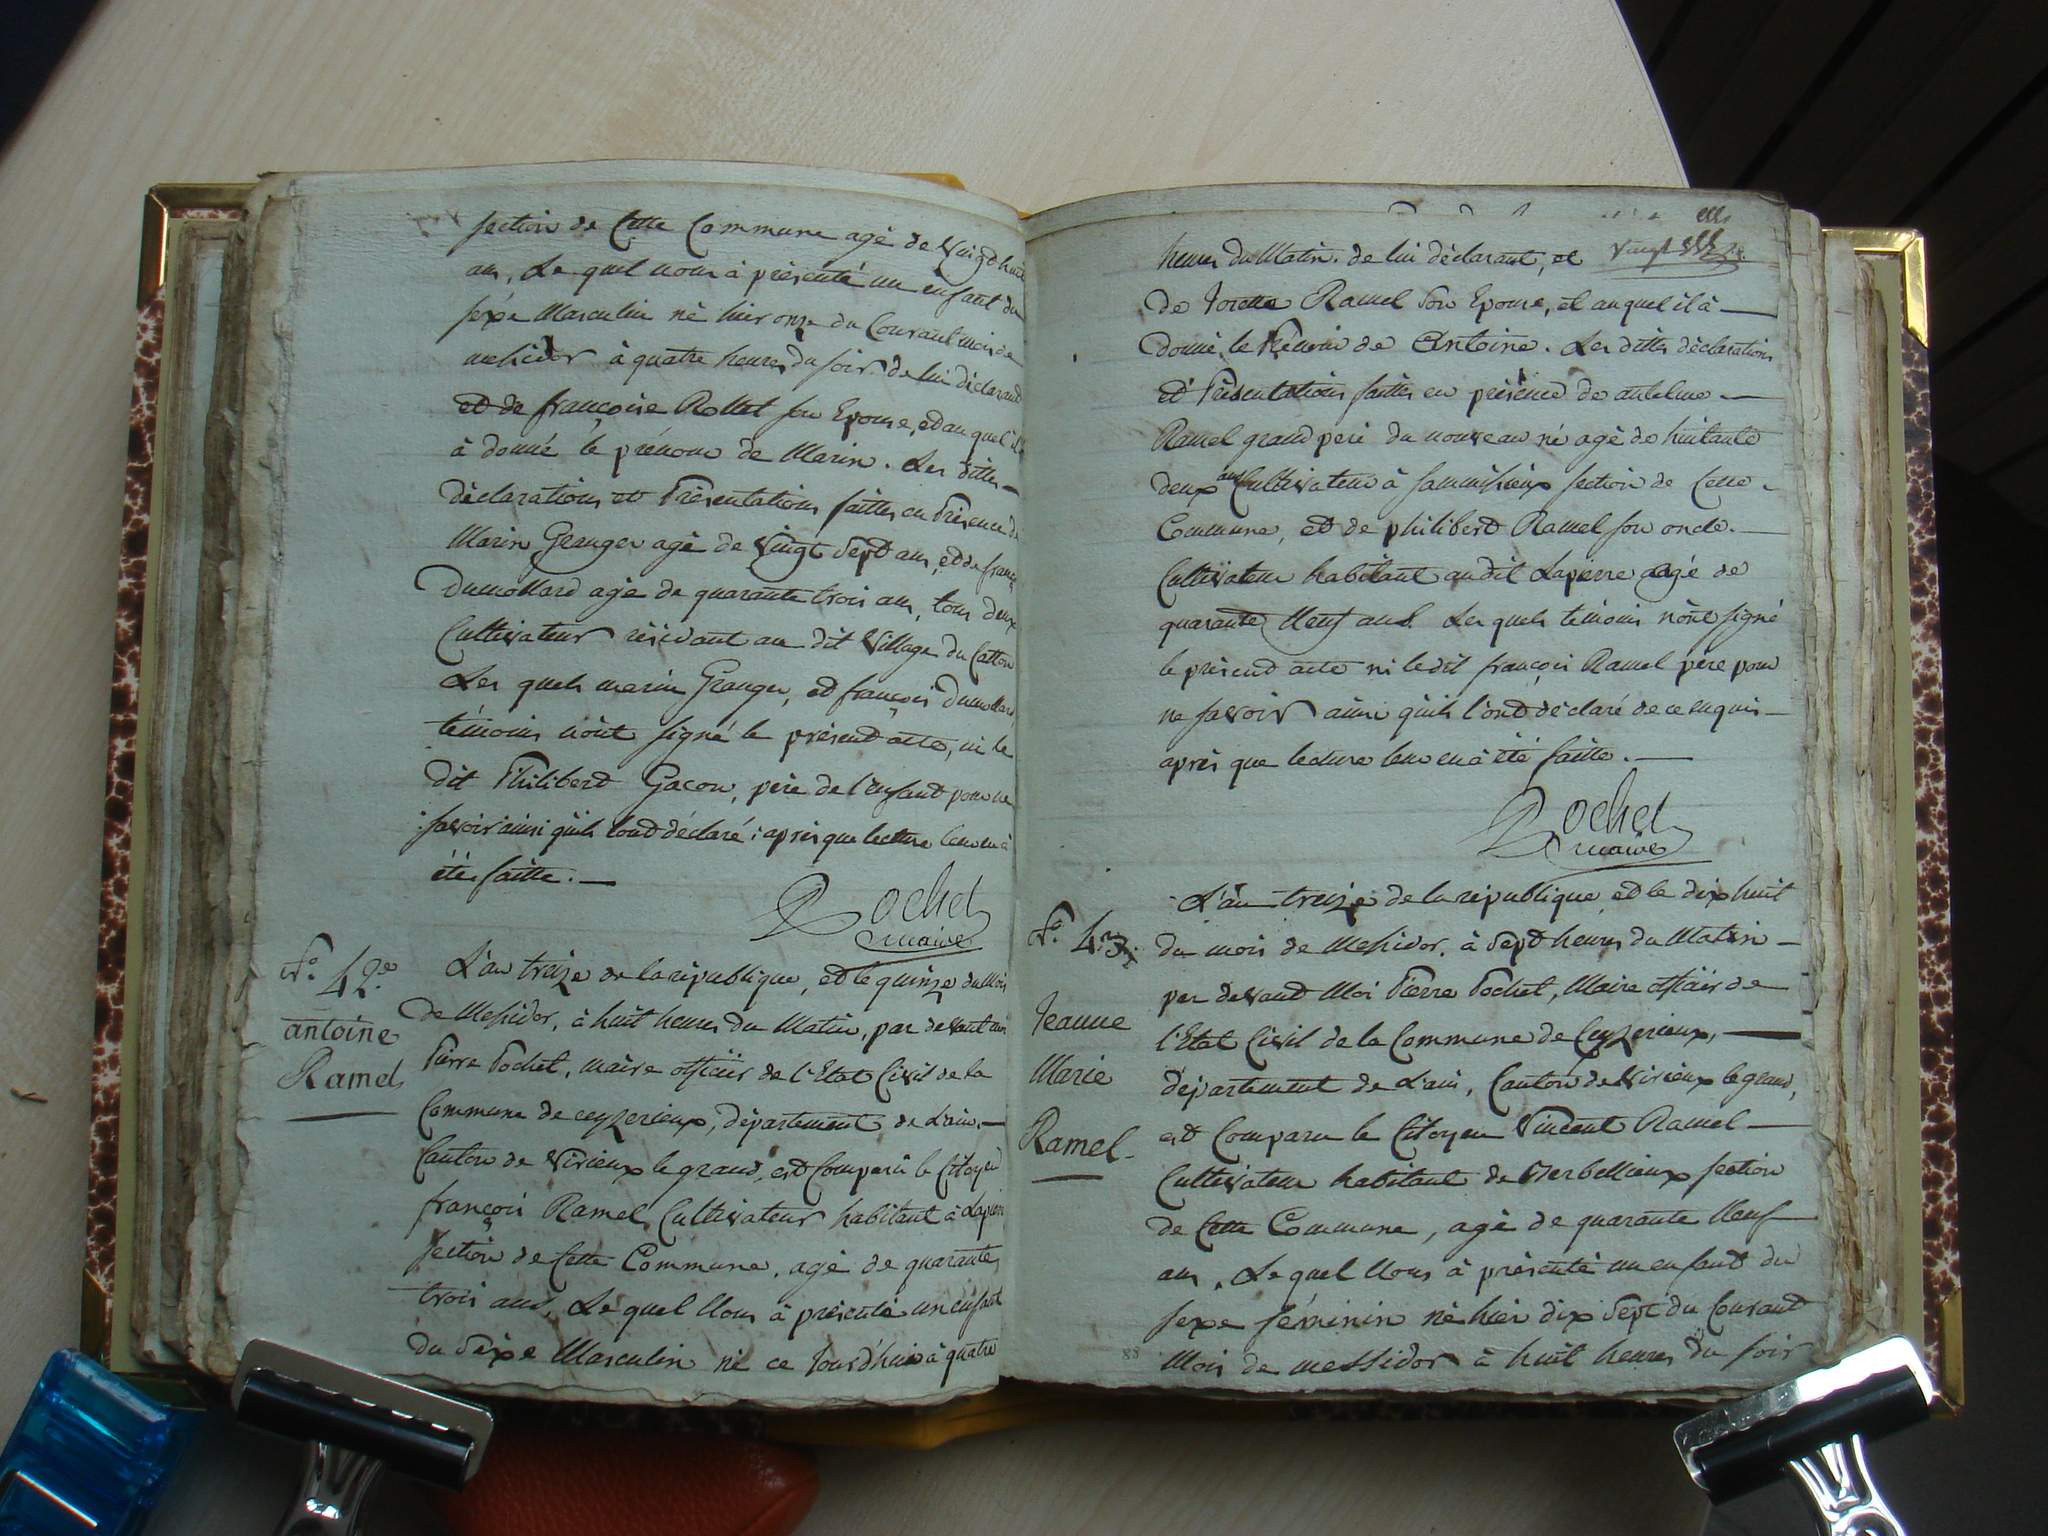 section de Cette Commune agé de Vingt huit
ans, Le quel nous à présenté un enfant du
séxe Masculin né hier onze du Courant mois de
mehidor à quatre heures du soir de lui déclarant
et de françoise Rollet son Epouse, et au quel il
à donné le prénom de Marin. Les dittes
déclarations et Présentations faittes en Présence de
Marin Granger agé de Vingt Sept ans, et de françois
Dumollard agé de quarante trois ans, tous deux
Cultivateur résidant au dit Village du Catton
Les quels marin Granger, et françois Dumollard
témoins n'ont signé le présent acte, ni le
dit Philibert Gacon, père de l'enfant pour ne
savoir ainsi quils l'ont déclaré; après que lecture leur en à
été faitte.
Pochet
maire
N.o 42.e
antoine
Ramel
L'an treize de la république, et le quinze du Mois
de Mehidor, à huit heures du Matin, par devant moi
Pierre Pochet, maire officier de l'Etat Civil de la
Commune de ceyzerieux, département de L'ain,
Canton de Virieux le grand, est Comparû le Citoyen
françois Ramel Cultivateur habitant à Lapierre
section de Cette Commune, agé de quarante
trois ans, Le quel Nous à présenté un enfant
du Séxe Masculin né ce Jourd'hui à quatre
Vingt
heures du Matin. de lui déclarant, et
de Josette Ramel Son Epouse, et auquel il à
donné le Prénom de Antoine. Les dittes déclarations
et Présentations faittes en présence de antelme
Ramel grand pere du nouveau né agé de huitante
deux ans Cultivateur à section de Cette
Commune, et de philibert Ramel son oncle
Cultivateur habitant audit Lapierre agé de
quarante Neuf ans. Les quels témoins n'ont signé
le présent acte ni ledit françois Ramel père pour
ne savoir ainsi quils l'ont déclaré de ce enquis
après que lecture leur en à été faitte.
Pochet
maire
N.o 43.
Jeanne
Marie
Ramel
L'an treize de la république et le dix huit
du mois de Mehidor, à Sept heures du Matin
par devant Moi Pierre Pochet, Maire officier de
l'Etat Civil de la Commune de Ceyzerieux,
département de L'ain, Canton de Virieux le grand,
est Comparu le Citoyen Vincent Ramel
Cultivateur habitant de section
de Cette Commune, agé de quarante Neuf
ans, Le quel Nous à présenté un enfant du
sexe féminin né hier dix Sept du Courant
Mois de messidor à huit heures du soir
88